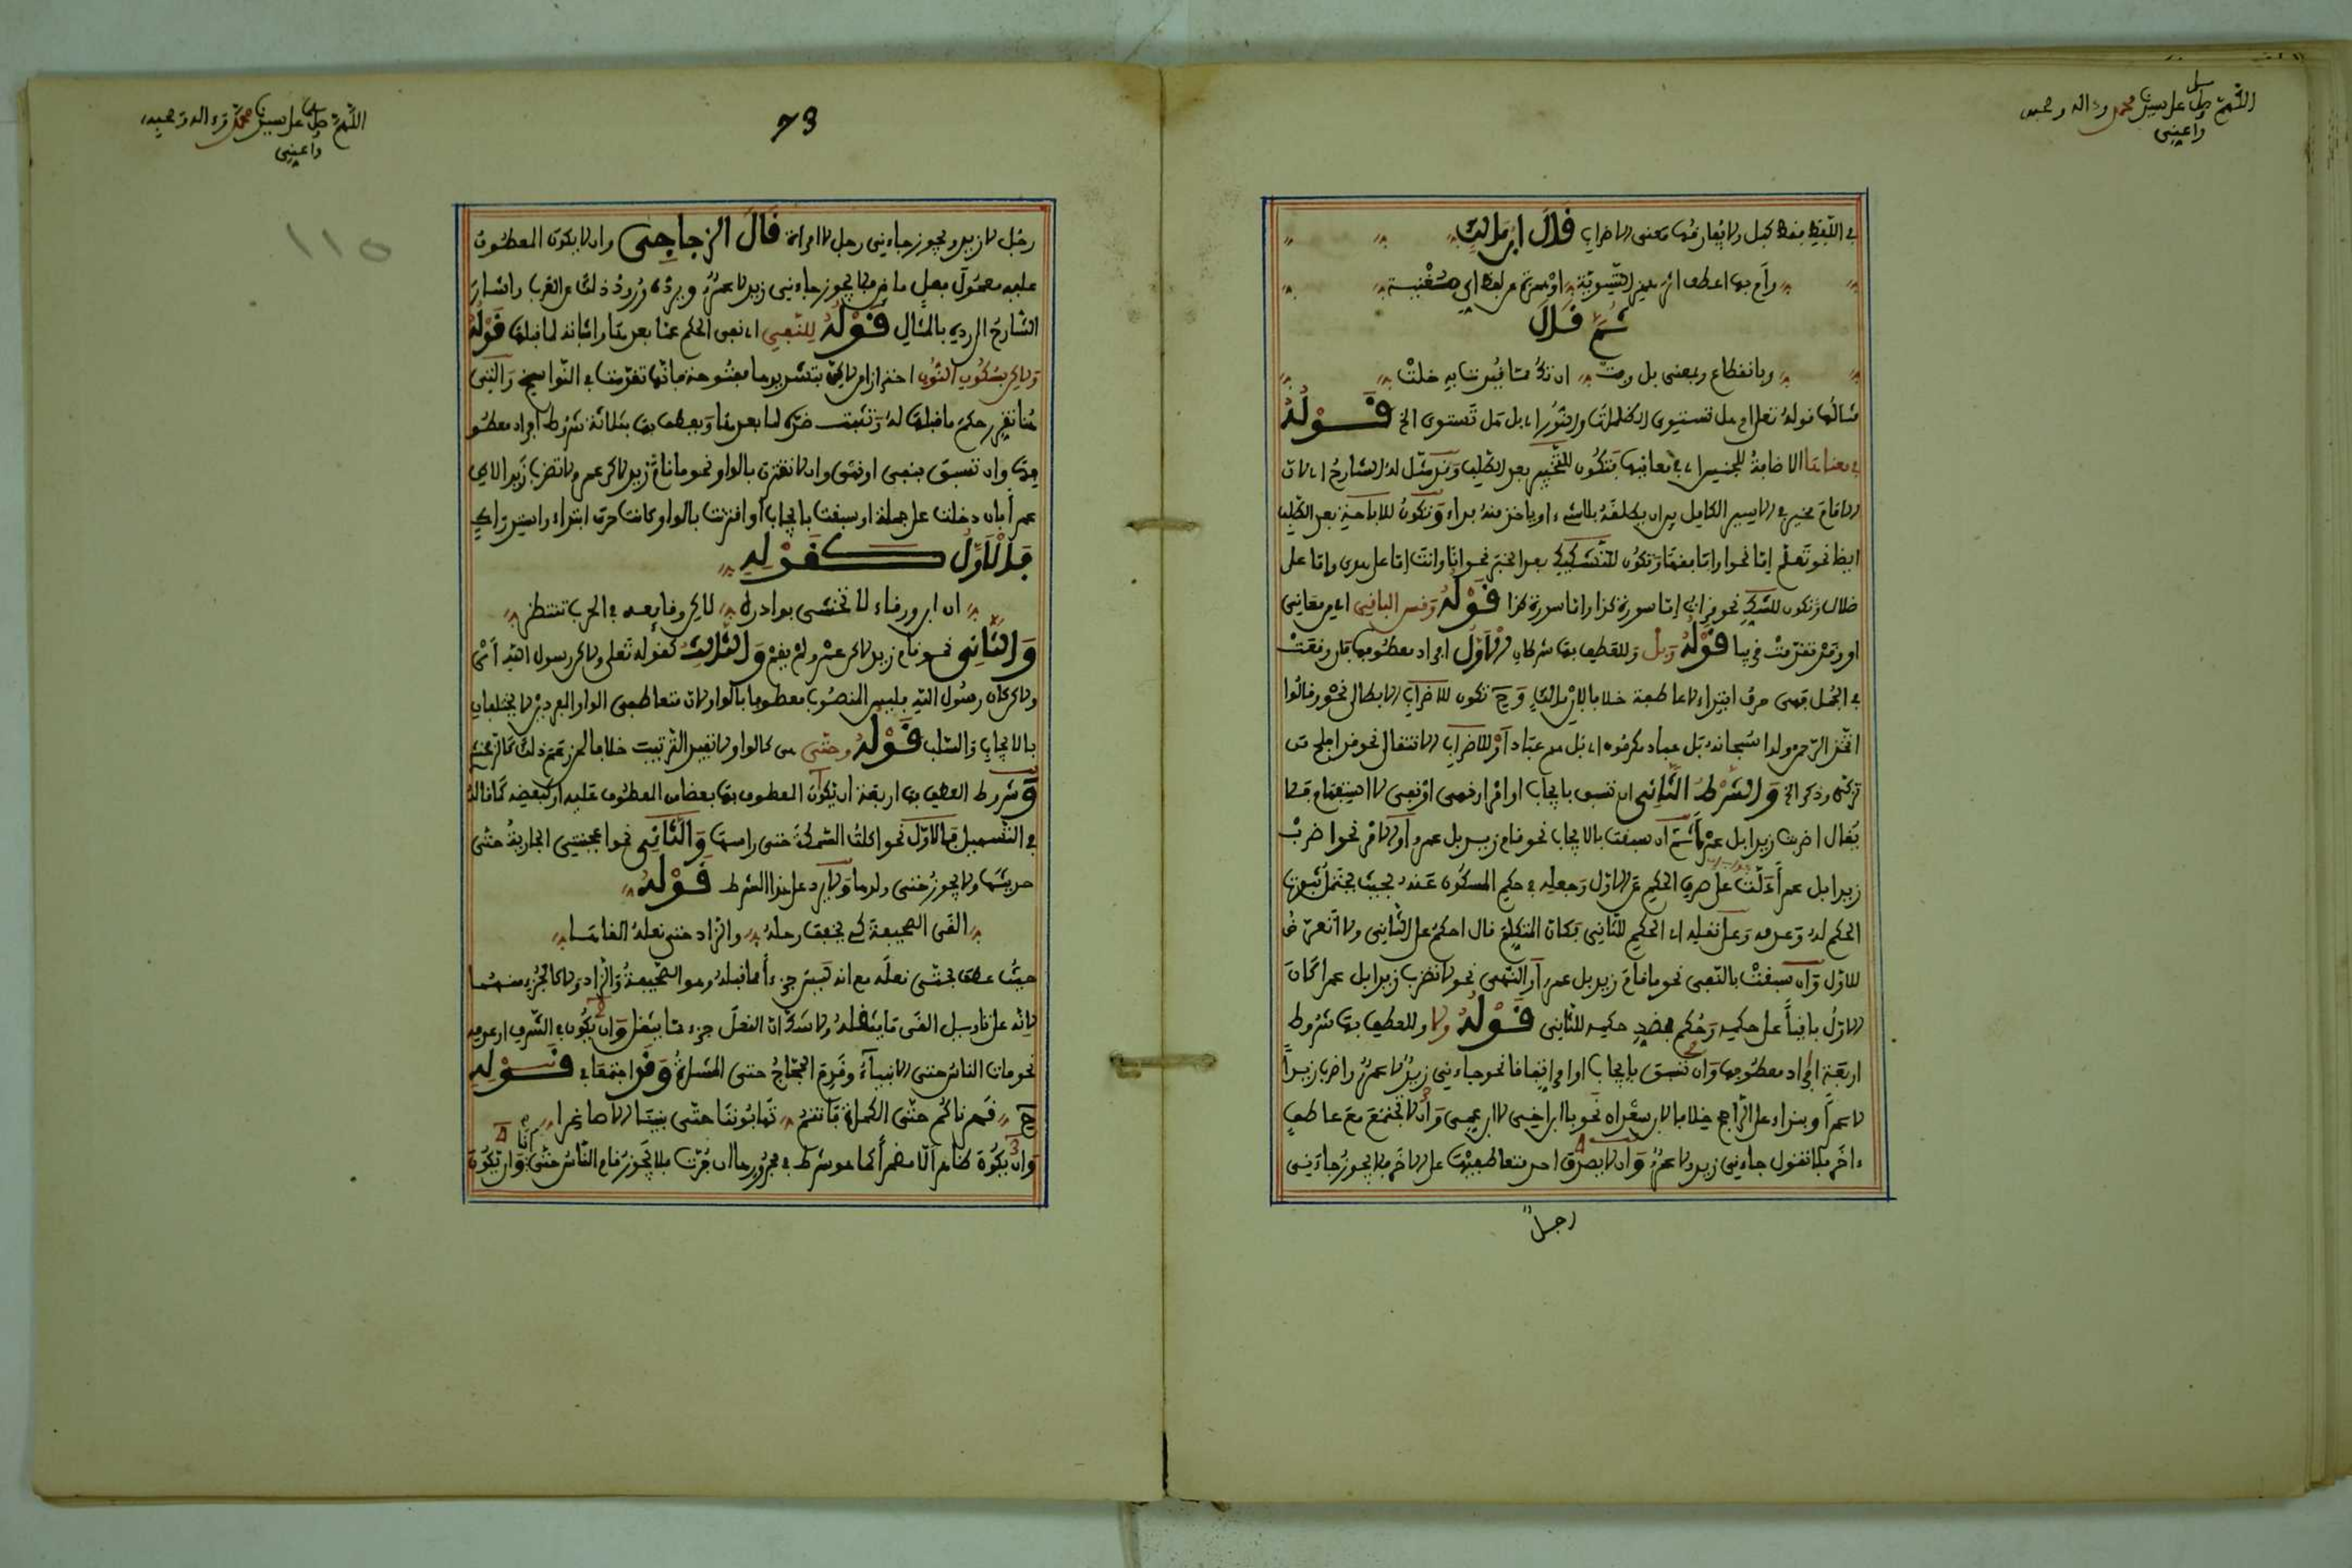 اللهم صل على سيدنا محمد وءاله وصحبه
واعيني
في اللفظ فقط كبل ولا يفارقها معنى الاضراب قال ابن مالك
وأم بها اعطف اثر همز التسوية أو همزة عن لفظ أي مغنية
ثم قال
وبانقطاع وبمعنى بل وفت ان تك مما قيدت به خلت
مثالها قوله تعلى ام هل تستوي الظلمات والنور اي بل هل تستوي الخ قوله
في معناها الاضافة للجنس اي في معانيها فتكون للتخيير بعد الطلب وقد مثل له الشارح اي لان
الامام مخير في الاسير الكامل بين ان يطلقه بلا شيء او ياخذ منه فداء وتكون للاباحة بعد الطلب
ايضا نحو تعلم إما نحوا وإما فقها وتكون للتشكيك بعد الخبر نحو انا وانت إما على هدى وإما على
ضلال وتكون للشك نحو قرات إما سورة كذا وإما سورة كذا قوله وقس الباقي اي من معاني
او وقد تقدمت قريبا قوله وبل وللعطف بها شرطان الأول افراد معطوفها فان وقعت
في الجمل فهي حرف ابتداء لا عاطفة خلافا لابن مالك وح تكون للاضراب الابطالي نحو وقالوا
اتخذ الرحمن ولدا سبحانه بل عباد مكرمون اي بل هم عباد أو للاضراب الانتقالي نحو قد افلح من
تزكى وذكر الخ والشرط الثاني ان تسبق بايجاب او امر او نهي او نفي لا استفهام فلا
يقال اضربت زيدا بل عمرا ثم ان سبقت بالايجاب نحو قام زيد بل عمرو أو الامر نحو اضرب
زيدا بل عمرا دلت على صرف الحكم عن الاول وجعله في حكم المسكوت عنه بحيث يحتمل ثبوت
الحكم له وعدمه وعلى نقله اي الحكم للثاني فكان المتكلم قال احكم على الثاني ولا اتعرض
للاول وان سبقت بالنفي نحو ما قام زيد بل عمرو أو النهي نحو لا تضرب زيدا بل عمرا كان
الاول باقيا على حكمه وحكم بضد حكمه للثاني قوله ولا وللعطف بها شروط
اربعة افراد معطوفها وان تسبق بايجاب او امر اتفاقا نحو جاءني زيد لا عمرو واضرب زيدا
لا عمرا او بنداء على الراجح خلافا لابن سعدان نحو يا ابن اخي لا ابن عمي وان لا تجتمع مع عاطف
ءاخر فلا تقول جاءني زيد ولا عمرو وان لا يصدق احد متعاطفيها على الاخر فلا يجوز جاءني
رجل
اللهم صل على سيدنا محمد وءاله وصحبه
واعيني
73
110
رجل لا زيد ويجوز جاءني رجل لا امراة قال الزجاجي وان لا يكون المعطوف
عليه معمول فعل ماض فلا يجوز جاءني زيد لا عمرو ويرده ورود ذلك عن العرب واشار
الشارح الى رده بالمثال قوله للنفي اي نفي الحكم عما بعدها واثباته لما قبلها قوله
ولكن بسكون النون احترازا من لكن بتشديدها مفتوحة فانها تقدمت في النواسخ والتي
هنا تقرر حكم ما قبلها له وتثبت ضده لما بعدها ويعطف بها بثلاثة شروط افراد معطو
فها وان تسبق بنفي او نهي وان لا تقترن بالواو نحو ما قام زيد لكن عمرو ولا تضرب زيدا لكن
عمرا فان دخلت على جملة او سبقت بايجاب او اقترنت بالواو كانت حرف ابتداء واستدراك
فالاول كقوله
ان ابن ورقاء لا تخشى بوادره لكن وقائعه في الحرب تنتظر
والثاني نحو قام زيد لكن عمرو لم يقم والثالث كقوله تعلى ولكن رسول الله أي
ولكن كان رسول الله فليس المنصوب معطوفا بالواو لان متعاطفي الواو المفردين لا يختلفان
بالايجاب والسلب قوله وحتى هي كالواو لا تفيد الترتيب خلافا لمن زعم ذلك كالزمخشري
وشروط العطف بها اربعة ان يكون المعطوف بها بعضا من المعطوف عليه او كبعضه كما قاله
في التسهيل فالاول نحو اكلت السمكة حتى راسها والثاني نحو اعجبتني الجارية حتى
حديثها ولا يجوز حتى ولدها ولا يرد على هذا الشرط قوله
القى الصحيفة كي يخفف رحله والزاد حتى نعله القاها
حيث عطف بحتى نعله مع انه ليس جزءا مما قبله وهو الصحيفة والزاد ولا كالجزء منهما
لانه على تاويل القى ما يثقله ولا شك ان النعل جزء مما يثقل وان يكون في الشرف او عدمه
نحو مات الناس حتى الانبياء وقدم الحجاج حتى المشاة وقد اجتمعا في قوله
قهرناكم حتى الكماة فانتم تهابوننا حتى بنينا الاصاغرا
وان يكون ظاهرا لا مضمرا كما هو شرط في مجرورها ان جرت فلا يجوز قام الناس حتى انا وان يكون